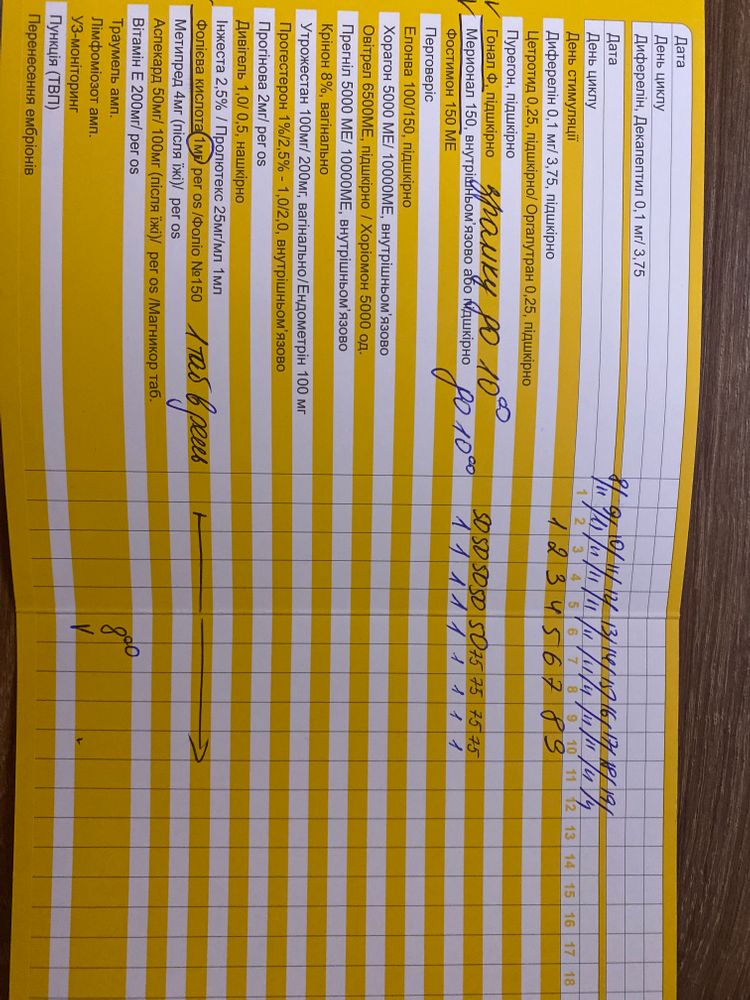 Дата
День циклу
Диферелін, Декапептил 0,1 мг/ 3,75
Дата 8/11 9/11 10/11 11/11 12/11 13/11 14/11 15/11 16/11 17/11 18/11 19/11
День циклу
День стимуляції 1 2 3 4 5 6 7 8 9 10 11 12 13 14 15 16 17 18
Диферелін 0,1 мг/ 3,75, підшкірно 1 2 3 4 5 6 7 8 9
Цетротид 0,25, підшкірно/ Оргалутран 0,25, підшкірно
Пурегон, підшкірно
V Гонал Ф, підшкірно зранку до 10⁰⁰ 50 50 50 50 50 75 75 75 75
V Мерионал 150, внутрішньом'язово або підшкірно до 10⁰⁰ 1 1 1 1 1 1 1 1 1
Фостимон 150 МЕ
Перговеріс
Елонва 100/150, підшкірно
Хорагон 5000 МЕ/ 10000МЕ, внутрішньом'язово
Овітрел 6500МЕ, підшкірно / Хоріомон 5000 од.
Прегніл 5000 МЕ/ 10000МЕ, внутрішньом'язово
Крінон 8%, вагінально
Утрожестан 100мг/ 200мг, вагінально/Ендометрін 100 мг
Прогестерон 1%/2,5% - 1,0/2,0, внутрішньом'язово
Прогінова 2мг/ per os
Дивігель 1,0/ 0,5, нашкірно
Інжеста 2,5% / Пролютекс 25мг/мл 1мл
Фолієва кислота 1мг/ per os /Фоліо №150 1 таб в день
Метипред 4мг (після їжі)/ per os
Аспекард 50мг/ 100мг (після їжі)/ per os /Магникор таб.
Вітамін Е 200мг/ per os
Траумель амп. 8⁰⁰
Лімфоміозот амп.
УЗ-моніторинг V
Пункція (ТВП)
Перенесення ембріонів